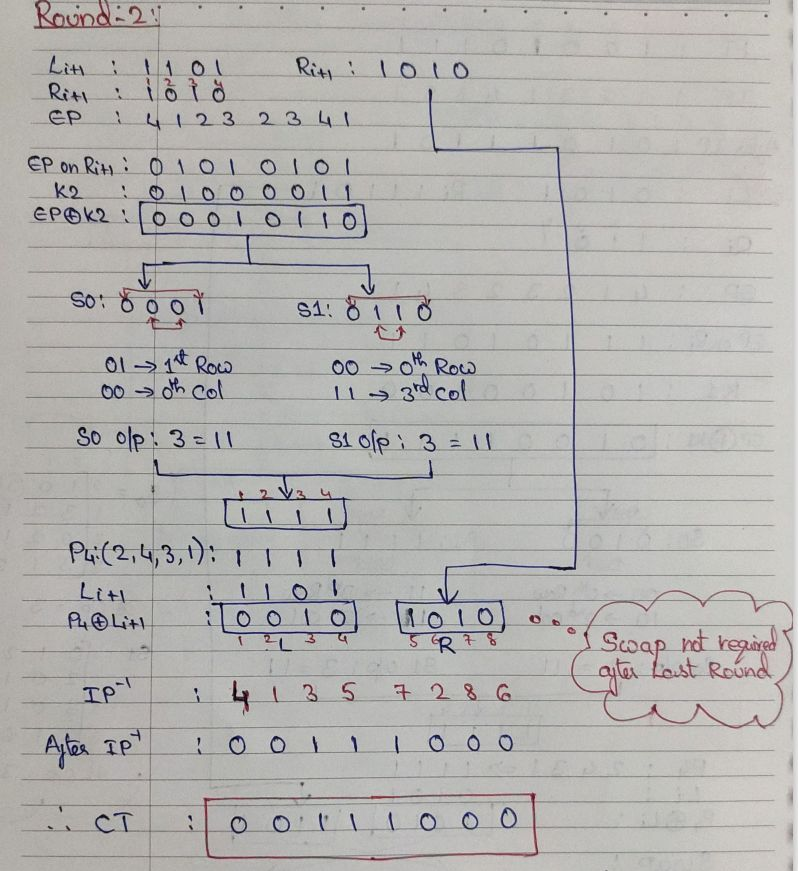 Round-2:
Li+1 : 1 1 0 1 Ri+1 : 1 0 1 0
1 2 3 4
Ri+1 : 1 0 1 0
EP : 4 1 2 3 2 3 4 1
EP on Ri+1 : 0 1 0 1 0 1 0 1
K2 : 0 1 0 0 0 0 1 1
EP⊕K2 : 0 0 0 1 0 1 1 0
S0: 0 0 0 1 S1: 0 1 1 0
01 → 1st Row 00 → 0th Row
00 → 0th Col 11 → 3rd Col
S0 o/p : 3 = 11 S1 o/p : 3 = 11
1 2 3 4
1 1 1 1
P4:(2,4,3,1): 1 1 1 1
Li+1 : 1 1 0 1
P4⊕Li+1 : 0 0 1 0 1 0 1 0
1 2 L 3 4 5 6 R 7 8
Swap not required
after Last Round
IP⁻¹ : 4 1 3 5 7 2 8 6
After IP⁻¹ : 0 0 1 1 1 0 0 0
∴ CT : 0 0 1 1 1 0 0 0